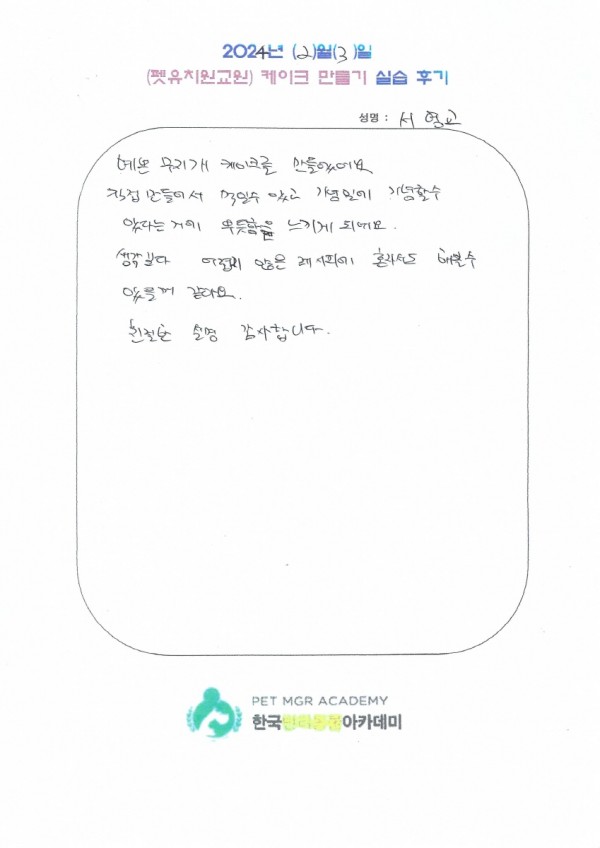 2024년 (2)월(3)일
(펫유치원교원) 케이크 만들기 실습 후기
성명 : 서 영교
예쁜 무지개 케이크를 만들었어요
직접 만들어서 먹일수 있고 기념일에 기념할수
있다는 거에 뿌듯함을 느끼게 되네요.
생각보다 어렵지 않은 레시피에 혼자서도 해볼수
있을꺼 같아요.
친절한 설명 감사합니다.
PET MGR ACADEMY
한국반려동물아카데미